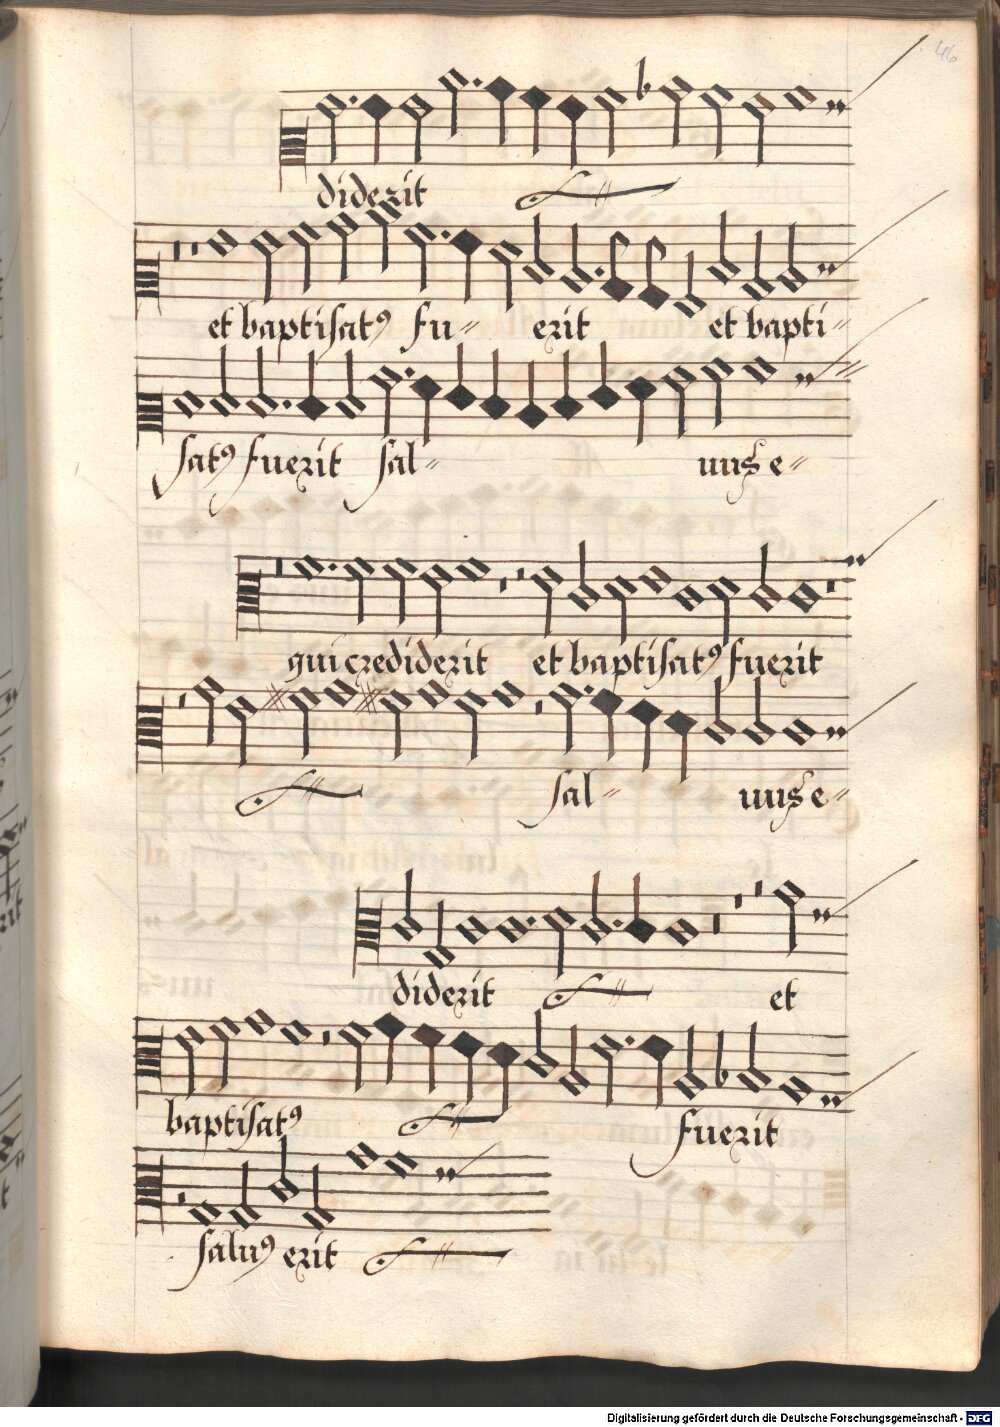 46
diderit
et baptisatꝯ fu= erit et bapti=
satꝯ fuerit sal= uus e=
qui crediderit et baptisatꝯ fuerit
sal= uus e=
diderit et
baptisatꝯ fuerit
saluꝯ erit
Digitalisierung gefördert durch die Deutsche Forschungsgemeinschaft - DFG